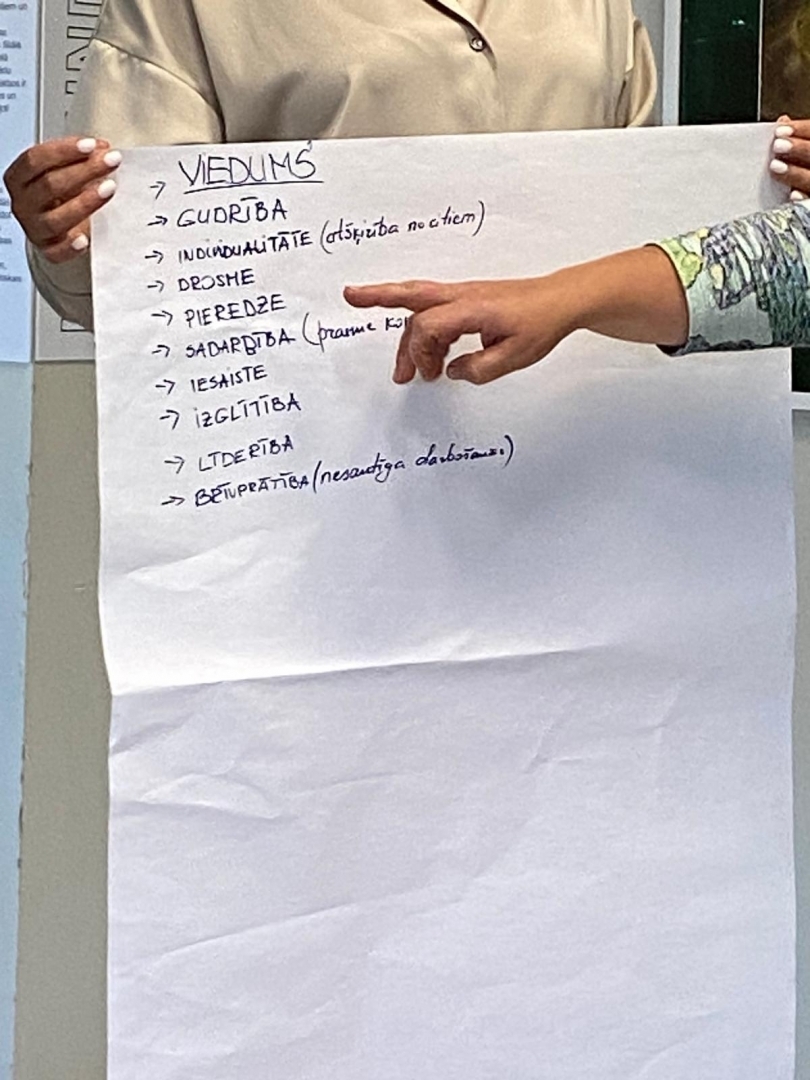 → VIEDUMS
→ GUDRĪBA
→ INDIVIDUALITĀTE (atšķirība no citiem)
→ DROSME
→ PIEREDZE
→ SADARBĪBA (prasme
→ IESAISTE
→ IZGLĪTĪBA
→ LĪDERĪBA
→ BRĪVPRĀTĪBA (nesavtīga darbošanās)